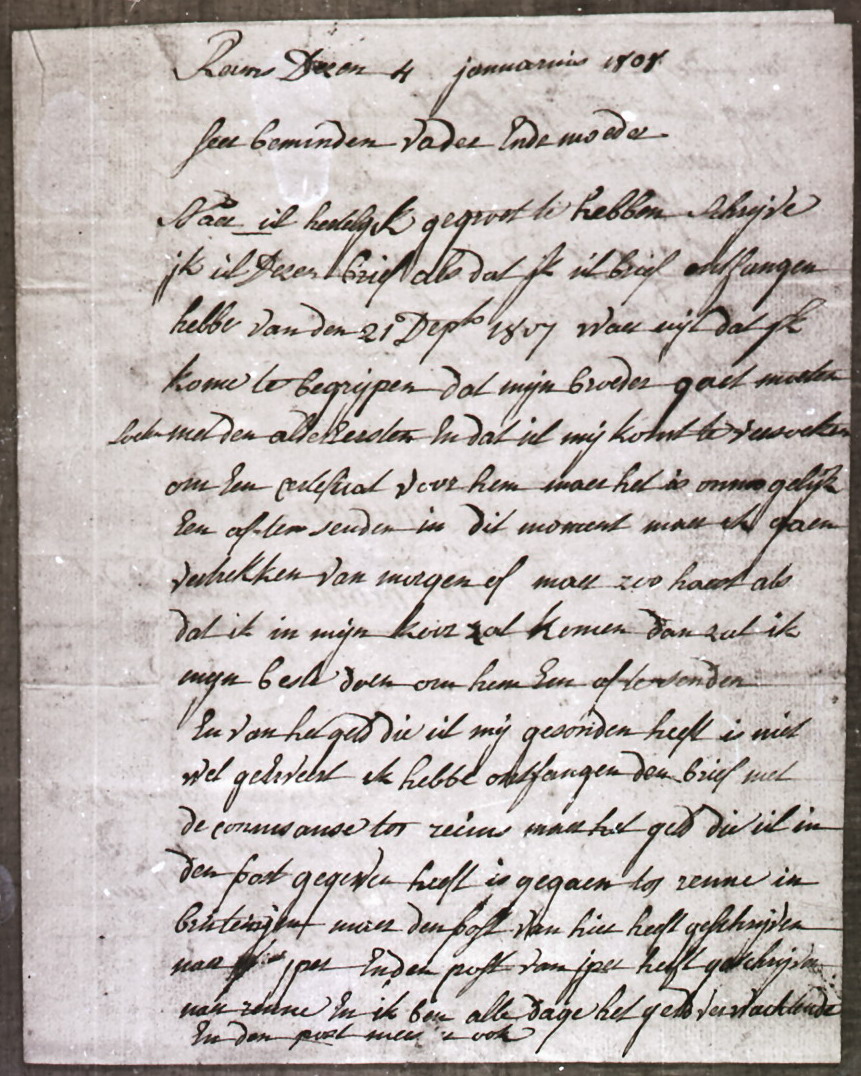 Reims Dezen 4 januarius 1808
seer beminden vader Ende moeder
Naer ul hertelijk gegroet te hebben schrijve
jk ul Dezen brief als dat jk ul brief ontfangen
hebbe van den 21 Dep 1807 waer uijt dat jk
kome te begrijpen dat mijn broeder gaet moeten
loten met den alder Eersten En dat ul mij komt te versoeken
om Een certificat voor hem maer het is onmogelijk
Een af te senden in dit moment maer ik gaen
vertrekken van morgen of maer zoo haest als
dat ik in mijn koor zal komen dan zal ik
mijn beste doen om hem Een af te senden
En van het geld die ul mij gesonden heeft is niet
wel geleveert ik hebbe ontfangen den brief met
de connisanse tot reims maer het geld die ul in
den post gegeven heeft is gegaen tot renne in
brutanjen maer den post van hier heeft geschrijven
naer jper Ende post van jper heeft geschrijven
naer renne En ik ben alle dage het geld verwachtende
En den post meester ook